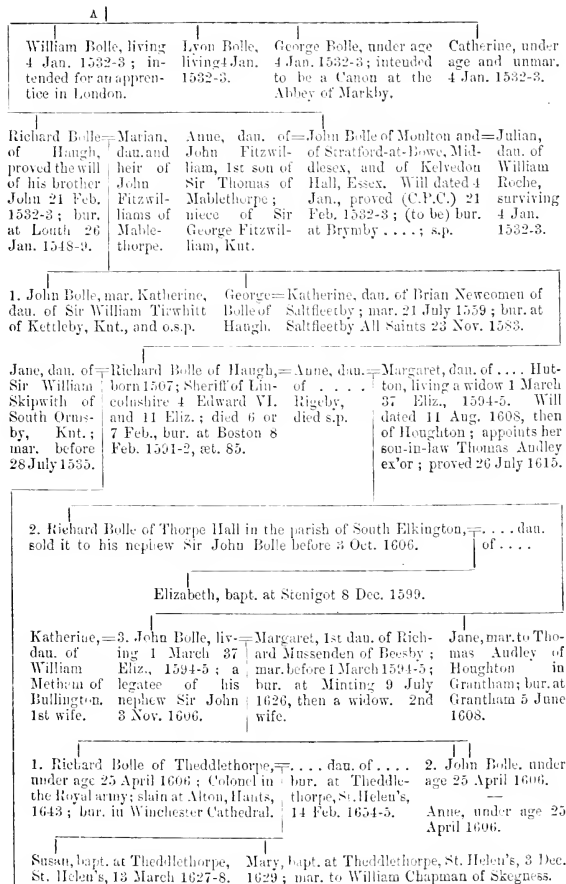 A
William Bolle, living
4 Jan. 1532-3 ; in-
tended for an appren-
tice in London.
Lyon Bolle,
living 4 Jan.
1532-3.
George Bolle, under age
4 Jan. 1532-3 ; intended
to be a Canon at the
Abbey of Markby.
Catherine, under
age and unmar.
4 Jan. 1532-3.
Richard Bolle
of Haugh,
proved the will
of his brother
John 21 Feb.
1532-3 ; bur.
at Louth 26
Jan. 1548-9.
=Marian,
dau. and
heir of
John
Fitzwil-
liams of
Mable-
thorpe.
Anne, dau. of
John Fitzwil-
liam, 1st son of
Sir Thomas of
Mablethorpe ;
niece of Sir
George Fitzwil-
liam, Knt.
=John Bolle of Moulton and
of Stratford-at-Bowe, Mid-
dlesex, and of Kelvedon
Hall, Essex. Will dated 4
Jan., proved (C.P.C.) 21
Feb. 1532-3 ; (to be) bur.
at Brymby . . . . ; s.p.
=Julian,
dau. of
William
Roche,
surviving
4 Jan.
1532-3.
1. John Bolle, mar. Katherine,
dau. of Sir William Tirwhitt
of Kettleby, Knt., and o.s.p.
George
Bolle of
Haugh.
=Katherine, dau. of Brian Newcomen of
Saltfleetby ; mar. 21 July 1559 ; bur. at
Saltfleetby All Saints 23 Nov. 1583.
Jane, dau. of
Sir William
Skipwith of
South Orms-
by, Knt. ;
mar. before
28 July 1535.
=Richard Bolle of Haugh,
born 1507; Sheriff of Lin-
colnshire 4 Edward VI.
and 11 Eliz. ; died 6 or
7 Feb., bur. at Boston 8
Feb. 1591-2, æt. 85.
=Anne, dau.
of . . . .
Rigeby,
died s.p.
=Margaret, dau. of . . . . Hut-
ton, living a widow 1 March
37 Eliz., 1594-5. Will
dated 11 Aug. 1608, then
of Houghton ; appoints her
son-in-law Thomas Audley
ex'or ; proved 26 July 1615.
2. Richard Bolle of Thorpe Hall in the parish of South Elkington,
sold it to his nephew Sir John Bolle before 3 Oct. 1606.
= . . . . dau.
of . . . .
Elizabeth, bapt. at Stenigot 8 Dec. 1599.
Katherine,
dau. of
William
Metham of
Bullington.
1st wife.
=3. John Bolle, liv-
ing 1 March 37
Eliz., 1594-5 ; a
legatee of his
nephew Sir John
3 Nov. 1606.
=Margaret, 1st dau. of Rich-
ard Mussenden of Beesby ;
mar. before 1 March 1594-5;
bur. at Minting 9 July
1626, then a widow. 2nd
wife.
Jane, mar. to Tho-
mas Audley of
Houghton in
Grantham; bur. at
Grantham 5 June
1608.
1. Richard Bolle of Theddlethorpe,
under age 25 April 1606 ; Colonel in
the Royal army; slain at Alton, Hants,
1643 ; bur. in Winchester Cathedral.
= . . . . dau. of . . . .
bur. at Theddle-
thorpe, St. Helen's,
14 Feb. 1654-5.
2. John Bolle, under
age 25 April 1606.
—
Anne, under age 25
April 1606.
Susan, bapt. at Theddlethorpe,
St. Helen's, 13 March 1627-8.
Mary, bapt. at Theddlethorpe, St. Helen's, 3 Dec.
1629 ; mar. to William Chapman of Skegness.